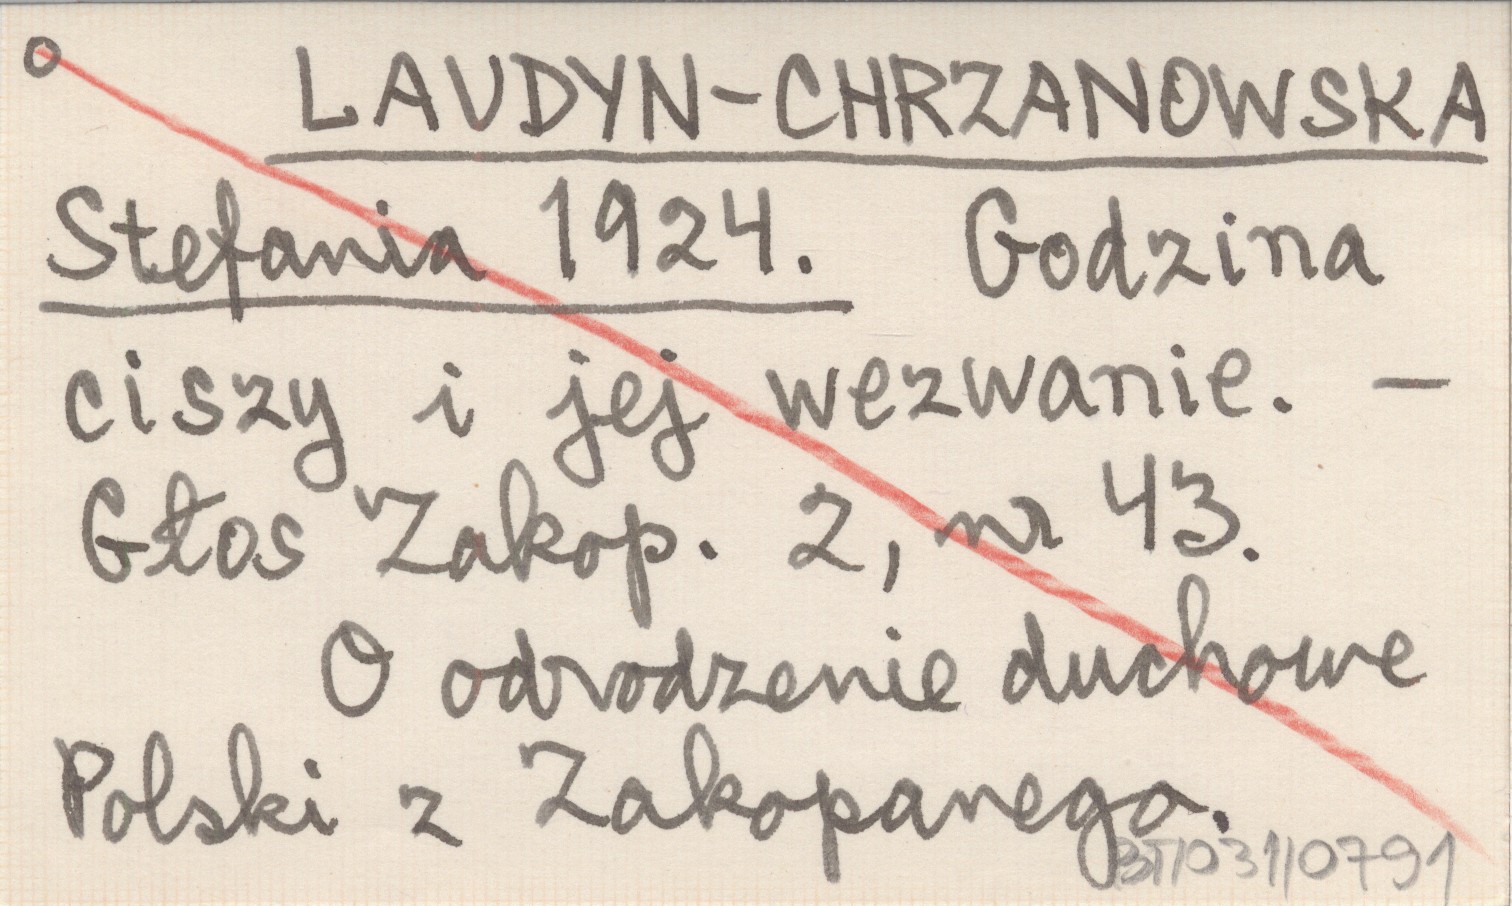 o LAUDYN-CHRZANOWSKA
Stefania 1924. Godzina
ciszy i jej wezwanie. —
Głos Zakop. 2, nr 43.
O odrodzenie duchowe
Polski z Zakopanego.
BT/031/0791